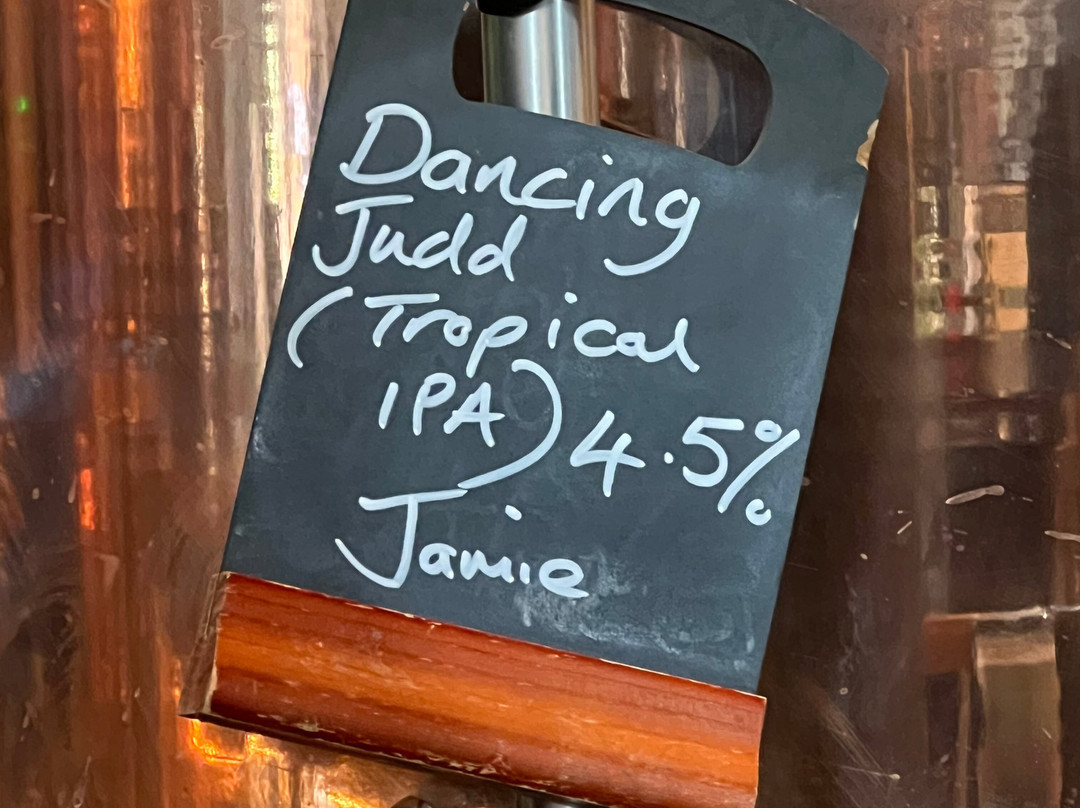 Dancing
Judd
(Tropical
IPA) 4.5%
Jamie